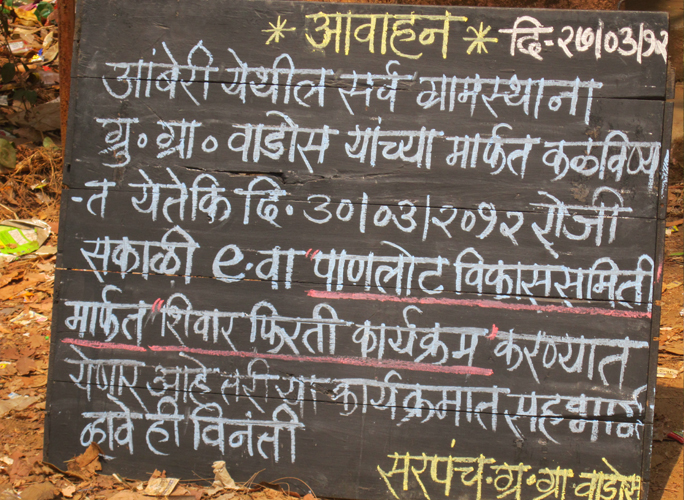 * आवाहन * दि- २७/०३/१२
आंबेरी येथील सर्व ग्रामस्थाना
ग्रु॰ग्रा॰ वाडोस यांच्या मार्फत कळविण्य
-त येतेकि दि॰ ३०/०३/२०१२ रोजी
सकाळी ९.वा "पाणलोट विकास समिती
मार्फत "शिवार फिरती कार्यक्रम" करण्यात
येणार आहे तरी या कार्यक्रमात सहभागी
व्हावे ही विनंती
सरपंच.ग्रु.ग्रा वाडोस